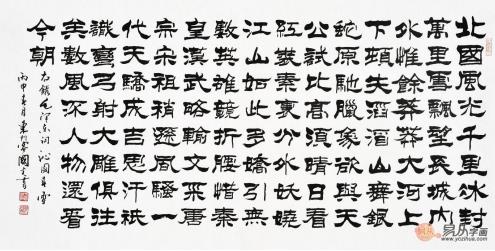 北國風光千里冰封
萬里雪飄望長城內
外惟餘莽莽大河上
下頓失滔滔山舞銀
蛇原馳臘象欲與天
公試比高須晴日看
紅裝素裹分外妖嬈
江山如此多嬌引無
數英雄競折腰惜秦
皇漢武略輸文采唐
宗宋祖稍遜風騷一
代天驕成吉思汗祇
識彎弓射大雕俱往
矣數風流人物還看
今朝
右錄毛澤東詞沁園春雪
丙申春月 書
易从字画
www.yczihua.com